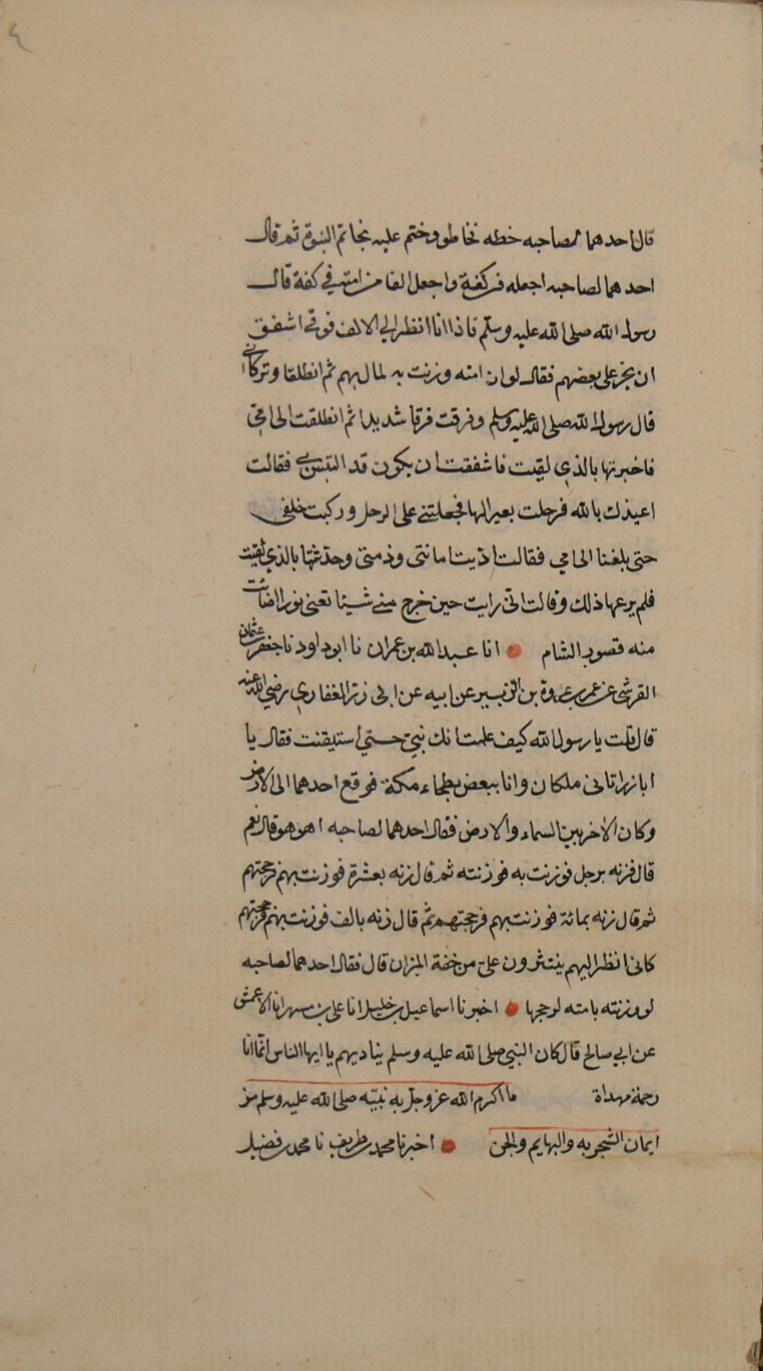 ٤
قال احدهما لصاحبه خطه نخاطو وختم عليه بخاتم النبوة ثم قال
احدهما لصاحبه اجعله في كفة واجعل الفا من امته في كفة قال
رسول الله صلى الله عليه وسلم فاذا انا انظر الي الالف فوقي اشفق
ان يخر على بعضهم فقال لو ان امته وزنت به لمال بهم ثم انطلقا وتركاني
قال رسول الله صلى الله عليه وسلم وفرقت فرقا شديدا ثم انطلقت الى امي
فاخبرتها بالذي لقيت فاشفقت ان يكون قد التبس بي فقالت
اعيذك بالله فرحلت بعيرا لها فجعلتني على الرحل وركبت خلفي
حتى بلغنا الى امي فقالت اديت امانتي وذمتي وحدثتها بالذي لقيت
فلم يرعها ذلك وقالت اني رايت حين خرج مني شيئا تعني نورا اضائت
منه قصور الشام انا عبد الله بن عمران نا ابو داود نا جعفر بن عثمان
القرشي عن عمر بن عروة بن الزبير عن ابيه عن ابي ذر الغفاري رضي الله عنه
قال قلت يا رسول الله كيف علمت انك نبي حتى استيقنت فقال يا
ابا ذر اتاني ملكان وانا ببعض بطحاء مكة فوقع احدهما الى الارض
وكان الاخر بين السماء والارض فقال احدهما لصاحبه اهو هو قال نعم
قال فزنه برجل فوزنت به فوزنته ثم قال زنه بعشرة فوزنت بهم فرجحتهم
ثم قال زنه بمائة فوزنت بهم فرجحتهم ثم قال زنه بالف فوزنت بهم فرجحتهم
كاني انظر اليهم ينتثرون علي من خفة الميزان قال فقال احدهما لصاحبه
لو وزنته بامته لرجحها اخبرنا اسماعيل بن خليل انا علي بن مسهر انا الاعمش
عن ابي صالح قال كان النبي صلى الله عليه وسلم يناديهم يا ايها الناس انما انا
رحمة مهداة ما اكرم الله عز وجل به نبيه صلى الله عليه وسلم من
ايمان الشجر به والبهايم والجن اخبرنا محمد بن طريف نا محمد بن فضيل